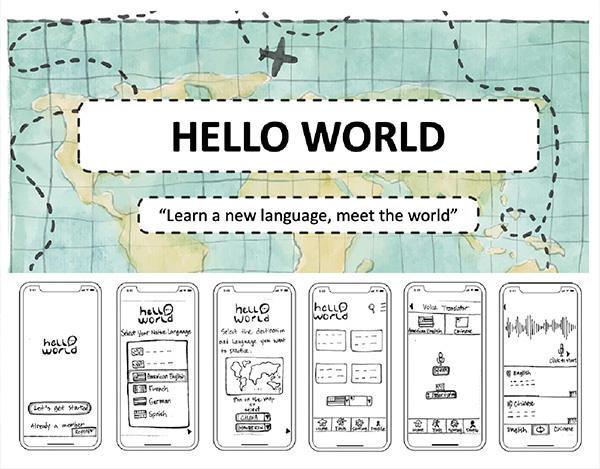 HELLO WORLD
“Learn a new language, meet the world”
hello
world
Let's get started
Already a member
hello
world
Select your Native language
American English
French
German
Spanish
hello
world
Select the destination
and language you want
to practice.
Pin in the map
or
select
CHINA
MANDARIN
hello
world
Home
Voice Translator
American English
Chinese
Speak
Home
Click to start
English
Chinese
English
Chinese